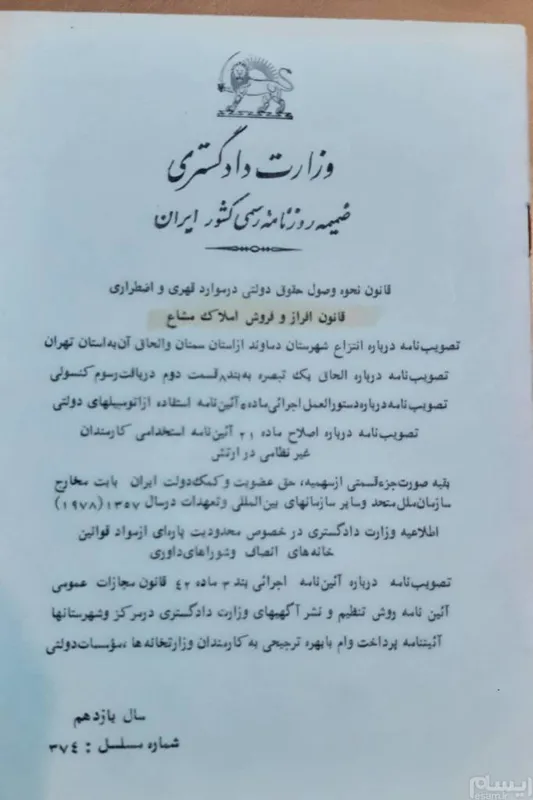 وزارت دادگستری
ضمیمه روزنامه رسمی کشور ایران
قانون نحوه وصول حقوق دولتی در موارد قهری و اضطراری
قانون افراز و فروش املاک مشاع
تصویب‌نامه درباره انتزاع شهرستان دماوند از استان سمنان و الحاق آن به استان تهران
تصویب‌نامه درباره الحاق یک تبصره به بند ۸ قسمت دوم دریافت رسوم کنسولی
تصویب‌نامه درباره دستورالعمل اجرائی ماده ۵ آئین‌نامه استفاده از اتومبیلهای دولتی
تصویب‌نامه درباره اصلاح ماده ۲۱ آئین‌نامه استخدامی کارمندان
غیر نظامی در ارتش
بقیه صورت جزء قسمتی از سهمیه، حق عضویت و کمک دولت ایران بابت مخارج
سازمان ملل متحد و سایر سازمانهای بین‌المللی و تعهدات در سال ۱۳۵۷ (۱۹۷۸)
اطلاعیه وزارت دادگستری در خصوص محدودیت پاره‌ای از مواد قوانین
خانه‌های انصاف و شوراهای داوری
تصویب‌نامه درباره آئین‌نامه اجرائی بند ۳ ماده ۴۲ قانون مجازات عمومی
آئین نامه روش تنظیم و نشر آگهیهای وزارت دادگستری در مرکز و شهرستانها
آئیننامه پرداخت وام با بهره ترجیحی به کارمندان وزارتخانه‌ها، مؤسسات دولتی
سال یازدهم
شماره مسلسل : ۳۷۴
ایسام
esam.ir